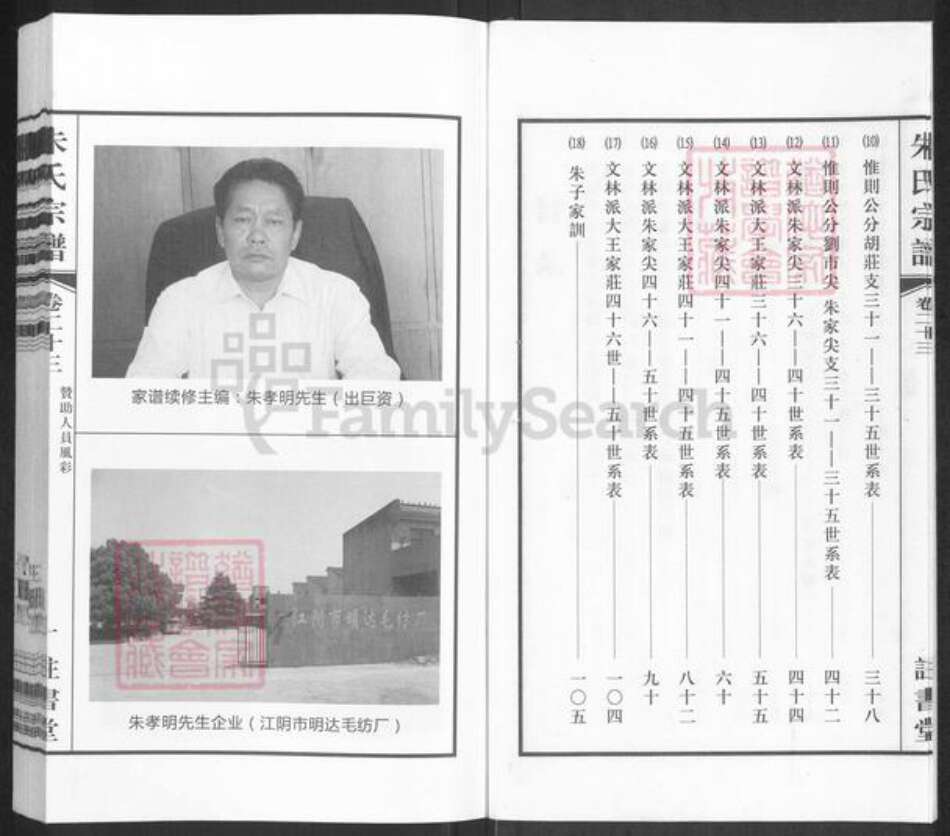 朱氏宗譜
卷二十三
註書堂
⑽ 惟則公分胡莊支三十一——三十五世系表 三十八
⑾ 惟則公分劉市尖 朱家尖支三十一——三十五世系表 四十二
⑿ 文林派朱家尖三十六——四十世系表 四十四
⒀ 文林派大王家莊三十六——四十世系表 五十五
⒁ 文林派朱家尖四十一——四十五世系表 六十
⒂ 文林派大王家莊四十一——四十五世系表 八十二
⒃ 文林派朱家尖四十六——五十世系表 九十
⒄ 文林派大王家莊四十六世——五十世系表 一〇四
⒅ 朱子家訓 一〇五
家谱续修主编：朱孝明先生（出巨资）
江阴市明达毛纺厂
朱孝明先生企业（江阴市明达毛纺厂）
朱氏宗譜
卷二十三
贊助人員風彩
一
註書堂
FamilySearch